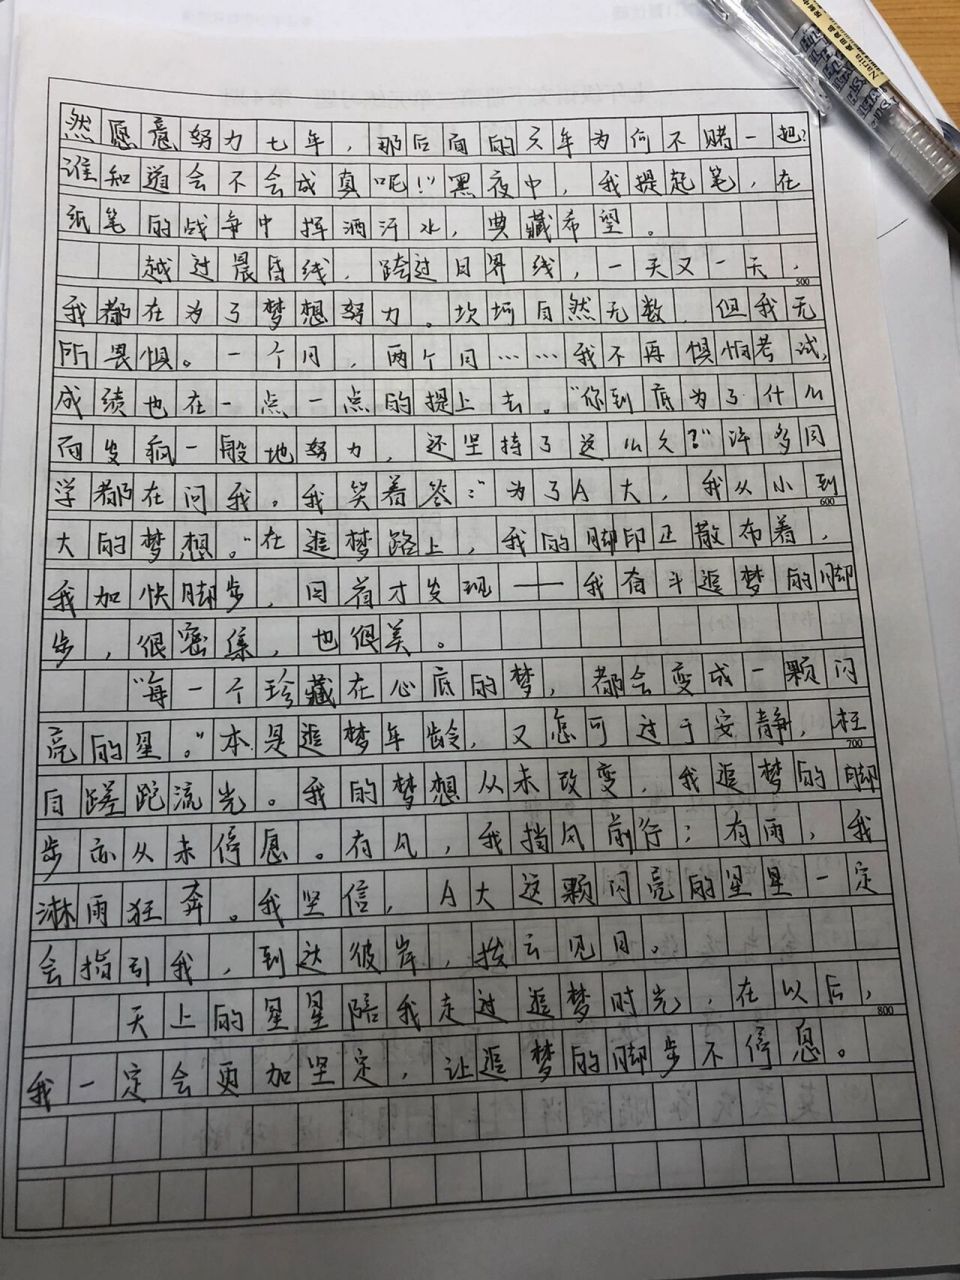 然愿意努力七年，那后面的六年为何不赌一把？
谁知道会不会成真呢！”黑夜中，我提起笔，在
纸笔的战争中挥洒汗水，典藏希望。
越过晨昏线，跨过日界线，一天又一天，
500
我都在为了梦想努力。坎坷自然无数，但我无
所畏惧。一个月，两个月……我不再惧怕考试，
成绩也在一点一点的提上去。“你到底为了什么
而发疯一般地努力，还坚持了这么久？”许多同
学都在问我。我笑着答：“为了A大，我从小到
600
大的梦想。”在追梦路上，我的脚印正散布着，
我加快脚步，回首才发现——我奋斗追梦的脚
步，很密集，也很美。
“每一个珍藏在心底的梦，都会变成一颗闪
亮的星。”本是追梦年龄，又怎可过于安静，枉
700
自蹉跎流光。我的梦想从未改变，我追梦的脚
步亦从未停息。有风，我挡风前行；有雨，我
淋雨狂奔。我坚信，A大这颗闪亮的星星一定
会指引我，到达彼岸，拨云见月。
天上的星星陪我走过追梦时光，在以后，
800
我一定会更加坚定，让追梦的脚步不停息。
Narita